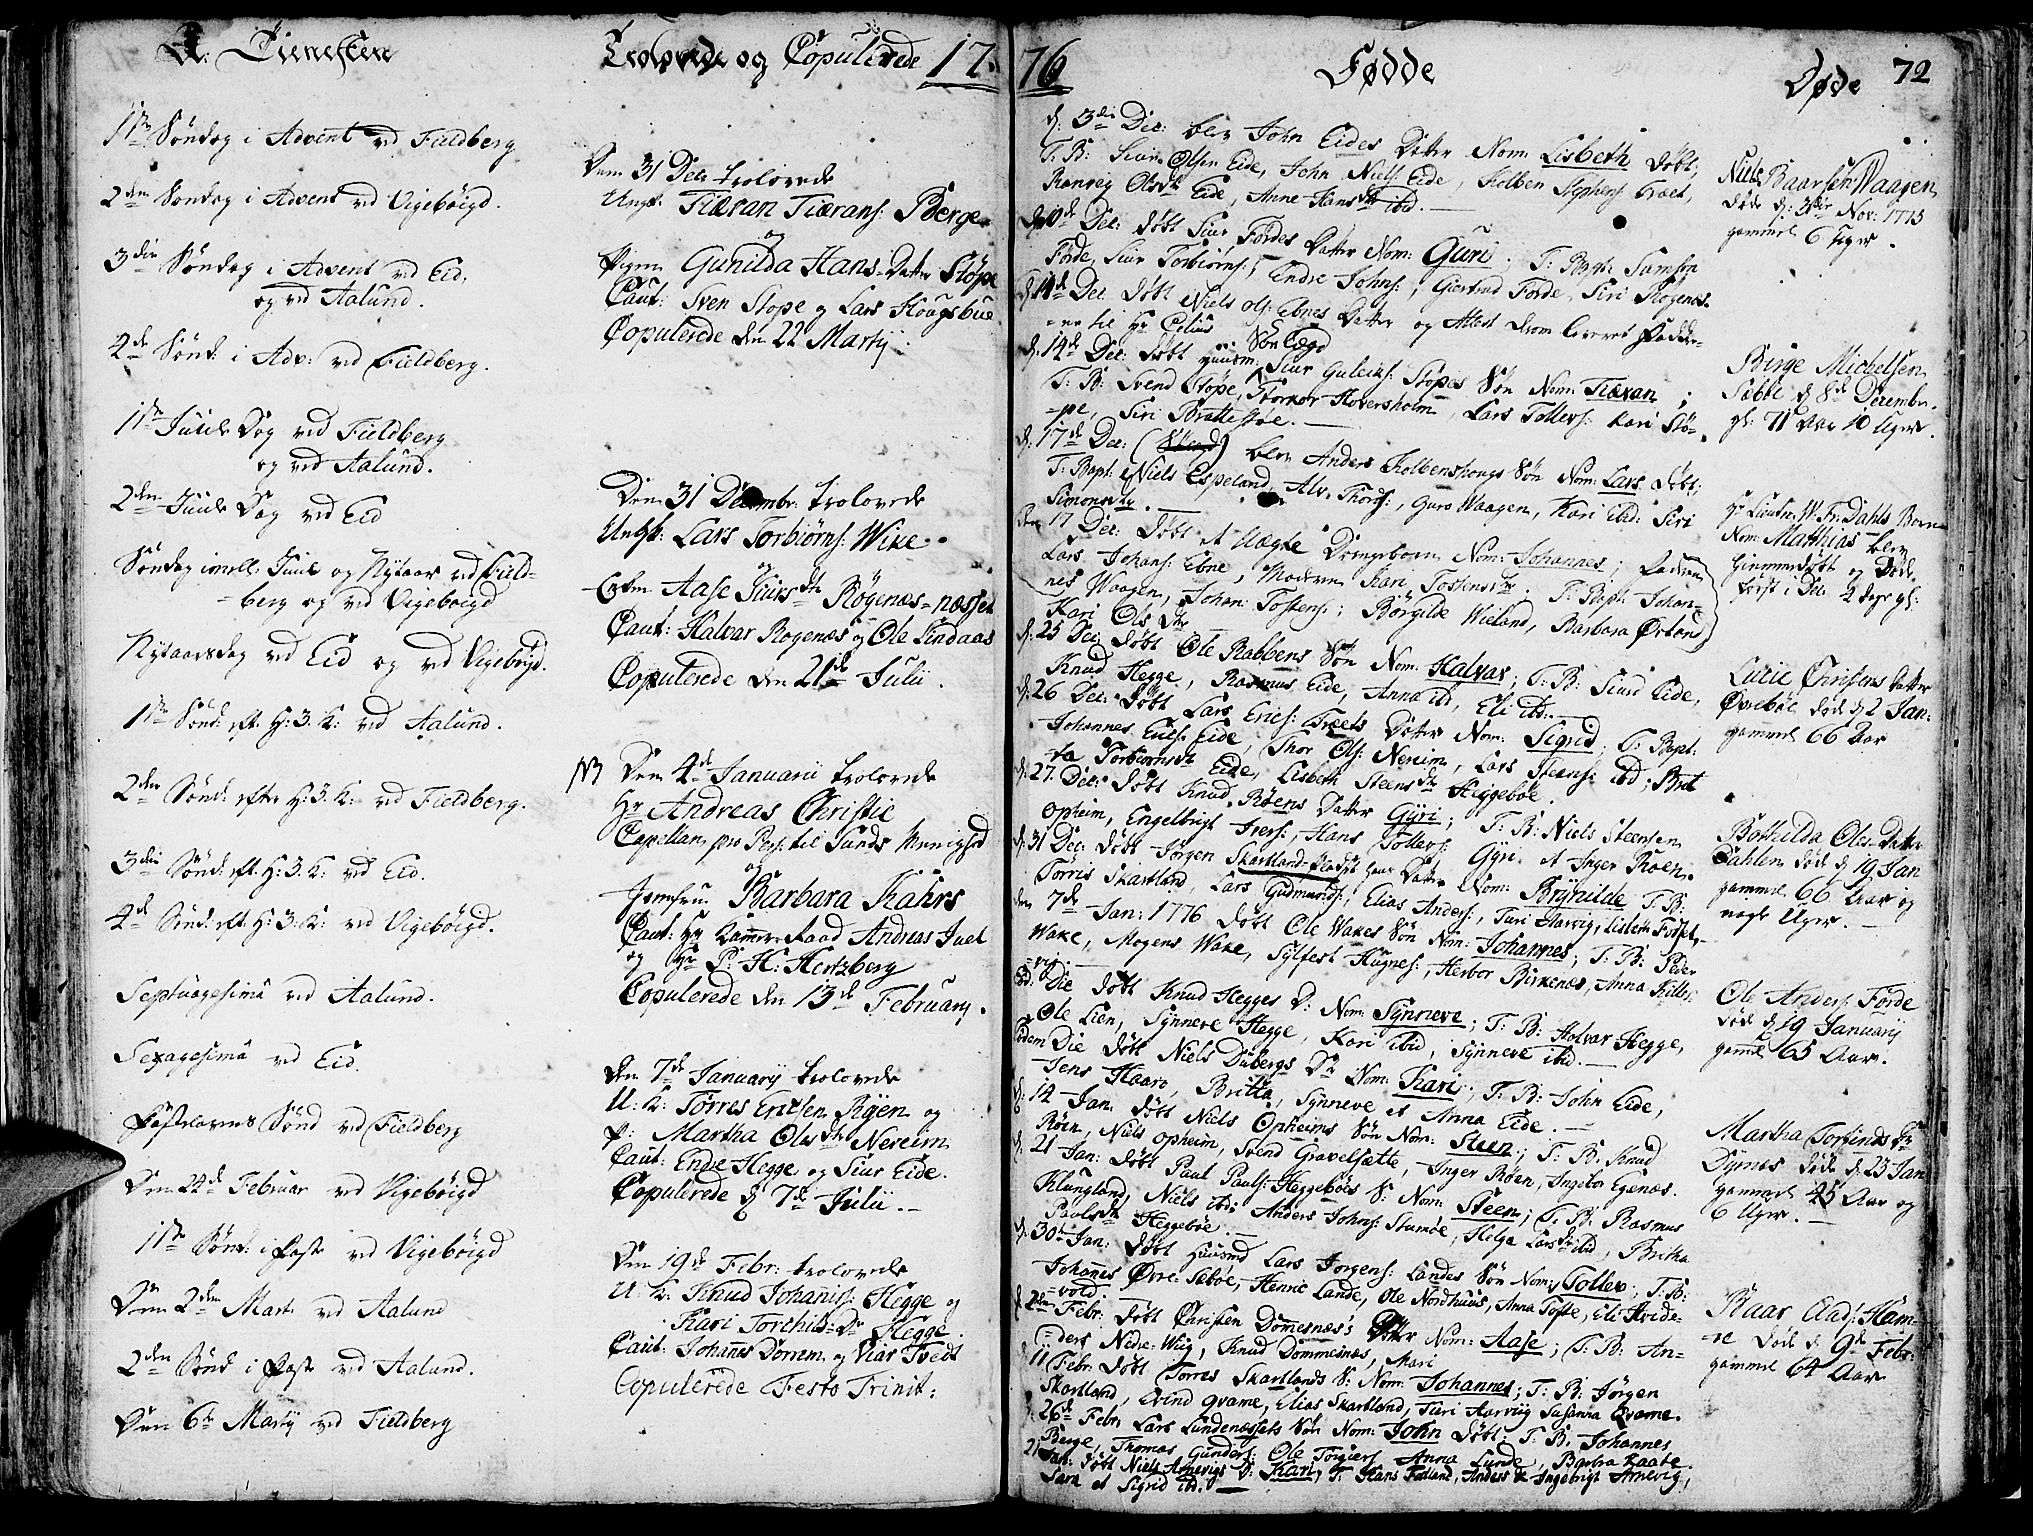 G: Tienesten
Trolovede og Copulerede 17
76
Fødde
Døde
72
1ste Søndag i Advent ved Fieldberg
2den Søndag i Advent ved Vigebøigd.
3die Søndag i Advent ved Eid,
og ved Aalund.
4de Sønd: i Adv: ved Fieldberg.
1ste Juule Dag ved Fieldberg
og ved Aalund.
2den Juule Dag ved Eid
Søndag imell. Juul og Nytaar ved Field-
berg og ved Vigebøigd
Nytaarsdag ved Eid og ved Vigebøigd.
1ste Sønd: eft. H: 3. K: ved Aalund.
2den Sønd: efter H: 3. K: ved Fieldberg.
3die Sønd: eft. H: 3. K: ved Eid.
4de Sønd: eft. H: 3. K: ved Vigebøigd.
Septuagesima ved Aalund.
Sexagesima ved Eid.
Fastelavens Sønd ved Fieldberg
Den 22de Februar ved Vigebøigd
1ste Sønd: i Faste ved Vigebøigd
Den 2den Mart: ved Aalund
2den Sønd: i Faste ved Aalund.
Den 6te Martij ved Fieldberg
Den 31 Dec: trolovede
Ungk: Tiæran Tiærans: Berge
og
Pigen Gunilda Hans-Datter Støpe
Caut: Sven Støpe og Lars Hougsbue
Copulerede den 22 Martij.
Den 31 Decembr: trolovede
Ungk: Lars Torbiørns: Wike
og
Aase Siursdtr Røgenæs-næsset
Caut: Halvar Rogenæs og Ole Lindaas
Copulerede den 21de Julii.
NB Den 4de Januarii trolovede
Hr Andreas Christie
Capellan pro Pers: til Sunds Menighed
og
Jomfru Barbara Kahrs
Caut: Hr Kammer Raad Andreas Juel
og Hr P: H: Hertzberg
Copulerede den 13de Februarij.
Den 7de Januarij trolovede
U: K: Torres Ericsen Røen og
P: Martha Olsdtr Nereim
Caut: Endre Hegge og Siur Eide.
Copulerede d: 7de Julii.
Den 19de Febr: trolovede
U: K: Knud Johannis: Hegge og
Kari Torchils Dtr Hegge
Caut: Johanes Dommem og Viar Tvedt
Copulerede Festo Trinit:
d: 3die Dec: blev John Eides Datter Nom: Lisbeth døbt;
T: B: Olsen Eide, John Niels: Eide, Kolben Stephens: Træet,
Ranveig Olsdtr Eide, Anne Hansdtr ibid.
d: 10de Dec: døbt Siur Førdes Datter Nom: Guri. T: Bapt: Samson
Førde, Siur Torbiørns:, Endre Johns:, Giertrud Førde, Siri Rogenæs.
d: 10de Dec. døbt Niels Ols: Ebnes Datter og Attest derom leveret
til Hr Celius
d: 14de Dec: døbt Huusm: Siur Guleiks: Støpes Søn Nom: Tiæran;
T: B: Svend Støpe, Storkor Hoversholm, Lars Tollevs: Kari Stø-
pe, Siri Brattestøe.
d: 17de Dec: blev Anders Kolbenshougs Søn Nom: Lars døbt;
T: Bapt: Niels Espeland, Alv. Thords:, Guro Waagen, Kari ibid: Siri
Simonsdtr.
Den 17 Dec: døbt et Uægte Drengebarn Nom: Johannes; Faderen
Lars Johans: Ebne, Moderen Kari Tostensdtr. T: Bapt: Johan-
nes Waagen, Johan: Tostens:; Børgilde Wieland, Barbara Østand
Kari Ols Dtr
d: 25 Dec: døbt Ole Rabbens Søn Nom: Halvar; T: B: Siurd Eide,
Knud Hegge, Rasmus Eide, Anna ibid, Eli ibid.
d: 26 Dec: døbt Lars Erics: Træets Datter Nom: Sigrid; T: Bapt:
Johannes Euls: Eide, Thor Ols: Nereim, Lars Steens: ibid; Brit
ta Torbiornsdtr Eide, Lisbeth Steensdtr Heggebøe.
d: 27. Dec: døbt Knud Røens Datter Gyri; T: B: Niels Steensen
Opheim, Engelbrigt Ivers:, Hans Tollevs: Gyri et Inger Roen.
d: 31 Dec: døbt Jorgen Skartland Datter Nom: Brynilde T: B:
Torris Skartland, Lars Gudmunds:, Elias Anders:, Turi Aarvig, Lisbeth
den 7de Jan: 1776 døbt Ole Wakes Søn Nom: Johannes; T: B: Peder
Wake, Mogens Wake, Sylfest Hugnes:, Herbor Birkenæs, Anna
Ead: Die døbt Knud Hegges D: Nom: Synneve; T: B: Holvar Hegge,
Ole Lien, Synneve Hegge, Kari ibid, Synneve ibid.
Eodem Die døbt Niels Dubergs Dtr Nom: Kari; T: B: John Eide,
Jens Haaro, Britta, Synneve et Anna Eide.
d: 14 Jan: døbt Niels Opheims Søn Nom: Steen; T: B. Knud
Røen, Niels Opheim, Svend Gravelsætte, Inger Røen, Ingebor Egenæs.
d: 21 Jan: døbt Paul Pauls: Heggebøes S: Nom: Steen; T: B: Rasmus
Klungland, Niels ibid: Anders Johns: Stumøe, Helga Larsdtr ibid, Britha
Paulsdtr Heggebøe.
d: 30 Jan: døbt Huusmd Lars Jorgens: Landes Søn Nom: Tollev; T: B:
Johannes Øvre-Sæbøe, Henric Lande, Ole Nordhuus, Anna Tofte, Eli Hvide-
vold.
d: 2den Febr: døbt Christen Dommesnæs's Datter Nom: Aase; T: B: An-
ders Nedre-Wiig, Knud Dommesnæs, Mari
11 Febr: døbt Torres Skartlands S: Nom: Johannes; T: B: Jørgen
Skartland, Evind Qvame, Elias Skartland, Turi Aarviig Susanna Qvame.
26de Febr: Lars Lundenæssets Søn Nom: John døbt: T: B. Johannes
Berge, Thomas Gunders: Ole Torgiers: Anna Lunde, Barbra Kaate.
21 Jan: døbt Niels Arnevigs D: Kari, T: Hans Følland, Anders & Ingebrigt Arnevig,
Sara et Sigrid ibid.
Niels Baarsen Waagen
døde d: Nov: 1775
gammel 6 Uger.
Birge Michelsen
Sæbbe d: 8de Decembr.
gl: 71 Aar 10 Uger.
Hr Lieutn: W: Fr: Dahls Barn
Nom: Matthias blev
hiemmedøbt og døde
først i Dec: 2 dage gl:
Lucie Christens Datter
Øvrebøe død d: 2 Jan:
gammel 66 Aar
Bothilda Ols-Datter
Dahlen død d: 19 Jan
gammel 66 Aar og
nogle Uger.
Ole Anders: Førde
død d: 19 Januarij
gaml 65 Aar.
Martha Torfinds Dtr
Dynæs døde d: 23 Jan
gammel 45 Aar og
6 Uger.
Baar Aads: Ham-
re døde d: 9de Febr:
gammel 64 Aar